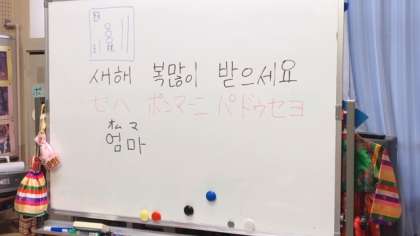 새해 복많이 받으세요
セハ ポンマーニ パドゥセヨ
オム マ
엄마